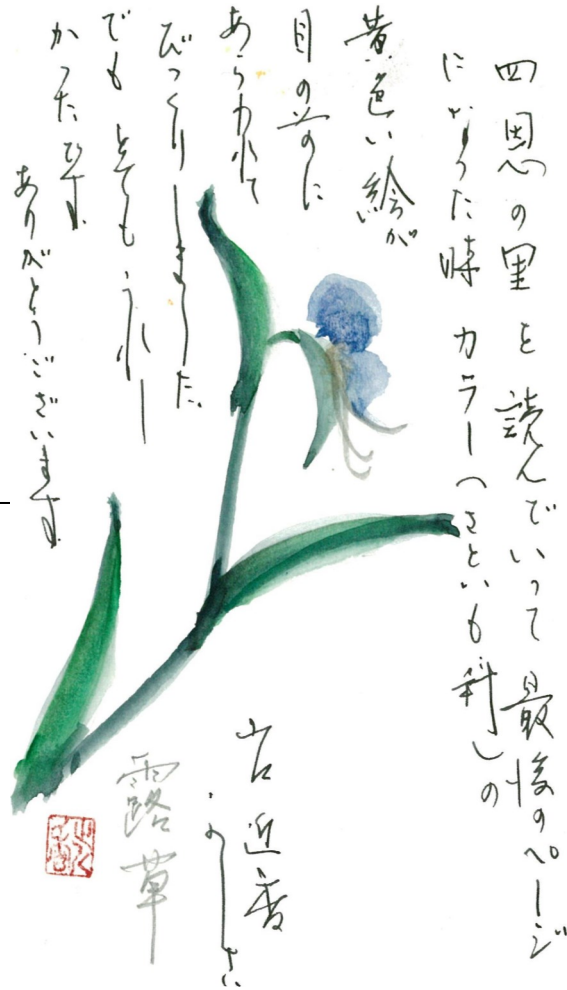 四恩の里を読んでいって最後のページ
になった時カラー(さといも科)の
黄色い絵が
目の前に
あらわれて
びっくりしました。
でもとてもうれし
かったです。
ありがとうございます。
露草